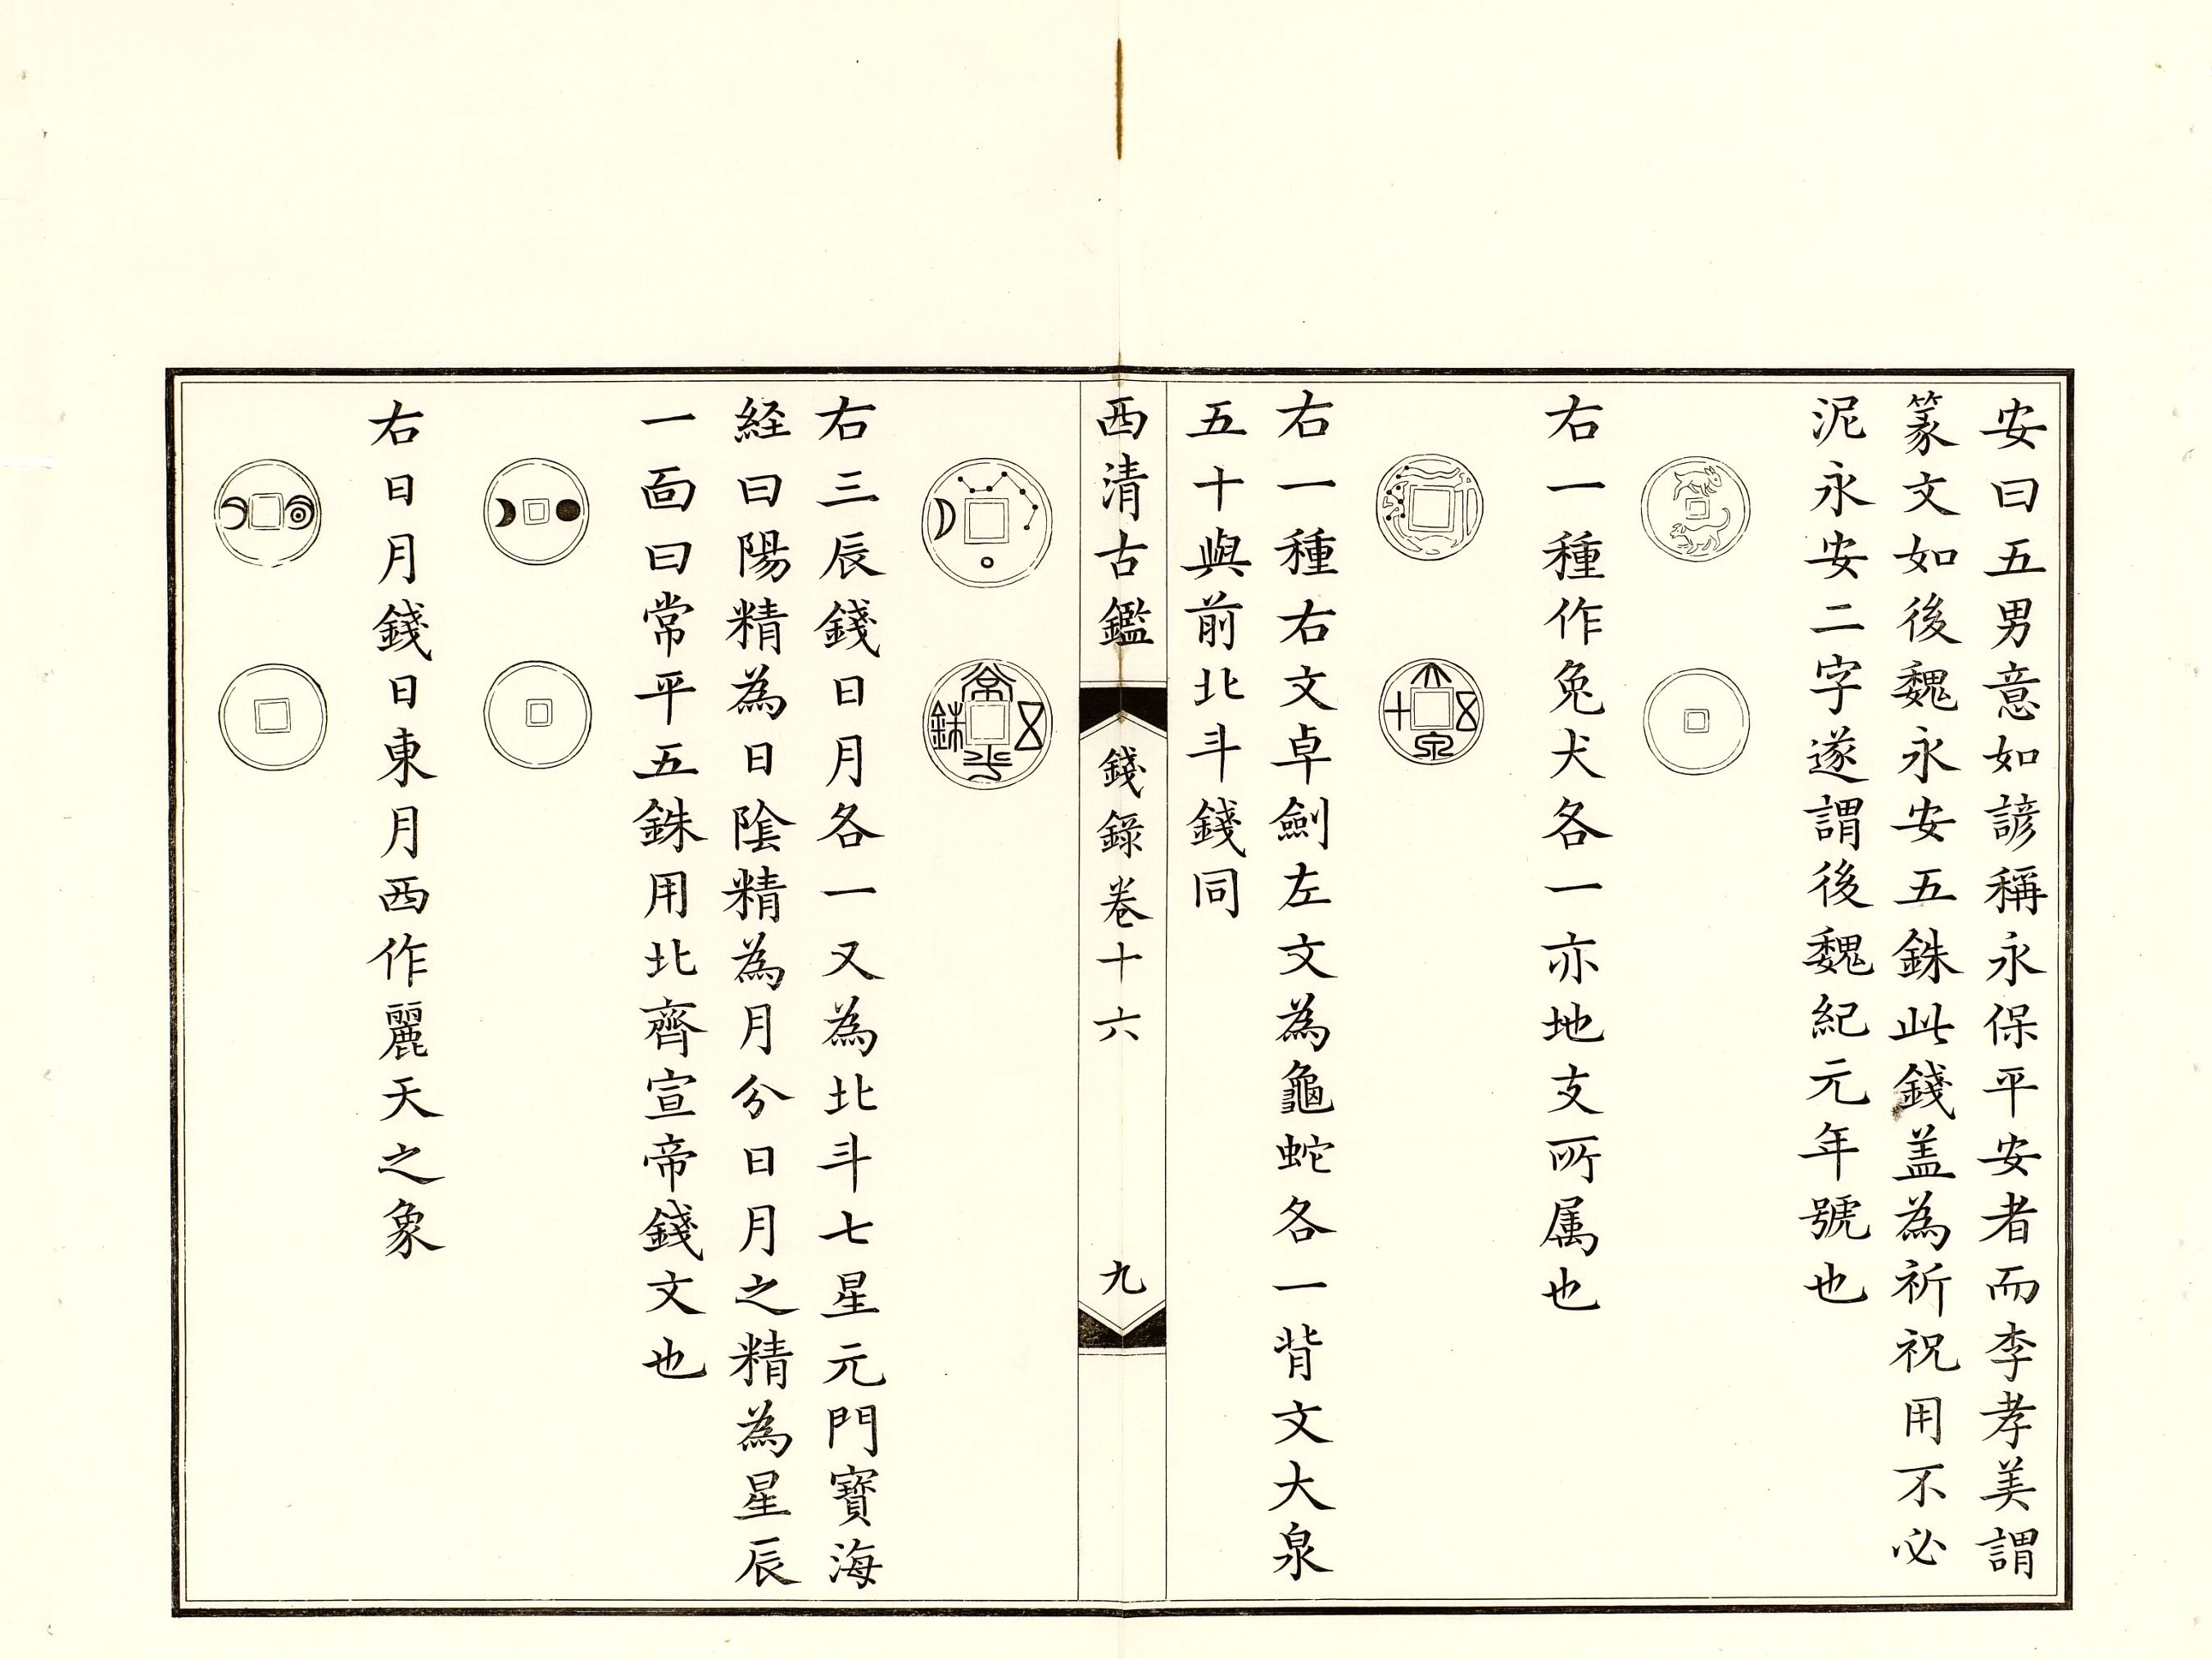 安曰五男意如諺稱永保平安者而李孝美謂
篆文如後魏永安五銖此錢盖為祈祝用不必
泥永安二字遂謂後魏紀元年號也
右一種作兔犬各一亦地支所属也
大泉五十
右一種右文卓劍左文為龜蛇各一背文大泉
五十與前北斗錢同
西清古鑑
錢錄卷十六
九
常平五銖
右三辰錢日月各一又為北斗七星元門寶海
経曰陽精為日陰精為月分日月之精為星辰
一面曰常平五銖用北齊宣帝錢文也
右日月錢日東月西作麗天之象